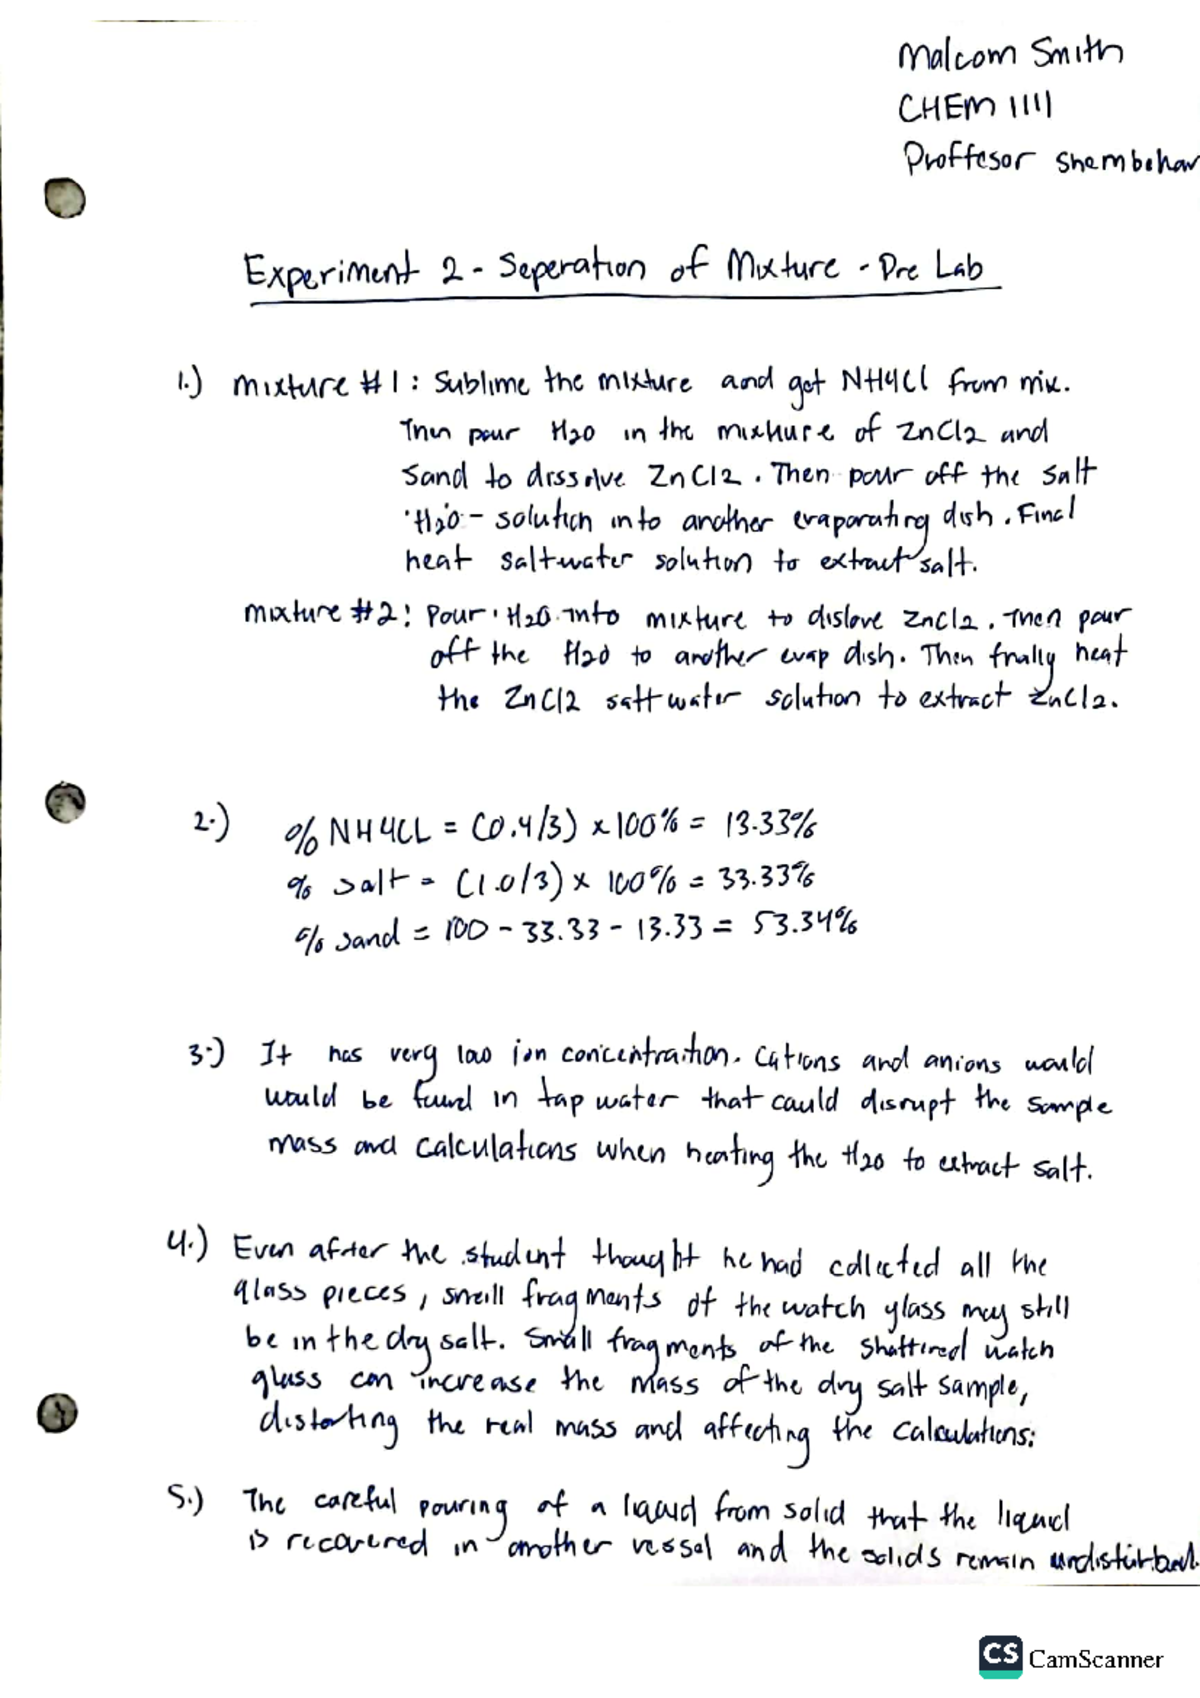 Malcom Smith
CHEM 1111
Proffesor Shembekar
Experiment 2 - Seperation of Mixture - Pre Lab
1.) mixture #1: Sublime the mixture and get NH4Cl from mix.
Then pour H2O in the mixture of ZnCl2 and
Sand to dissolve ZnCl2. Then pour off the salt
H2O - solution into another evaporating dish. Final
heat saltwater solution to extract salt.
mixture #2: Pour H2O into mixture to dislove ZnCl2. Then pour
off the H2O to another evap dish. Then finally heat
the ZnCl2 saltwater solution to extract ZnCl2.
2.) % NH4CL = (0.4/3) x 100% = 13.33%
% salt = (1.0/3) x 100% = 33.33%
% sand = 100 - 33.33 - 13.33 = 53.34%
3.) It has very low ion concentration. Cations and anions would
would be found in tap water that could disrupt the sample
mass and calculations when heating the H2O to extract salt.
4.) Even after the student thought he had collected all the
glass pieces, small fragments of the watch glass may still
be in the dry salt. Small fragments of the shattired watch
glass can increase the mass of the dry salt sample,
distorting the real mass and affecting the calculations.
5.) The careful pouring of a liquid from solid that the liquid
is recovered in another vessel and the solids remain undisturbed.
CS CamScanner